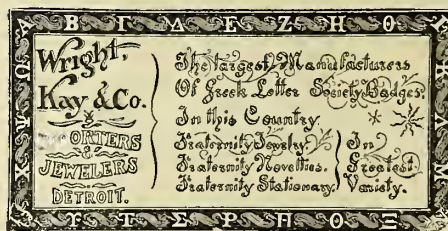 Α Β Γ Δ Ε Ζ Η Θ
Wright,
Kay & Co.
IMPORTERS
&
JEWELERS
DETROIT.
The Largest Manufacturers
Of Greek Letter Society Badges.
In this Country.
Fraternity Jewelry
Fraternity Novelties.
Fraternity Stationary.
In
Greatest
Variety.
Υ Τ Σ Ρ Π Ο Ξ